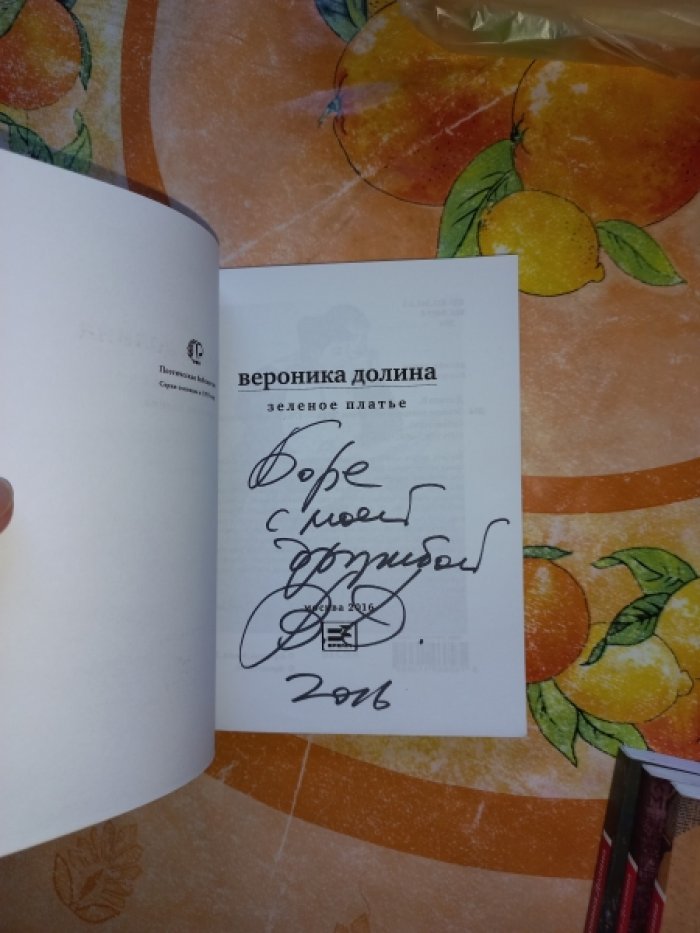 Поэтическая библиотека
вероника долина
зеленое платье
Боре
с моей
дружбой
москва 2016
время
2016